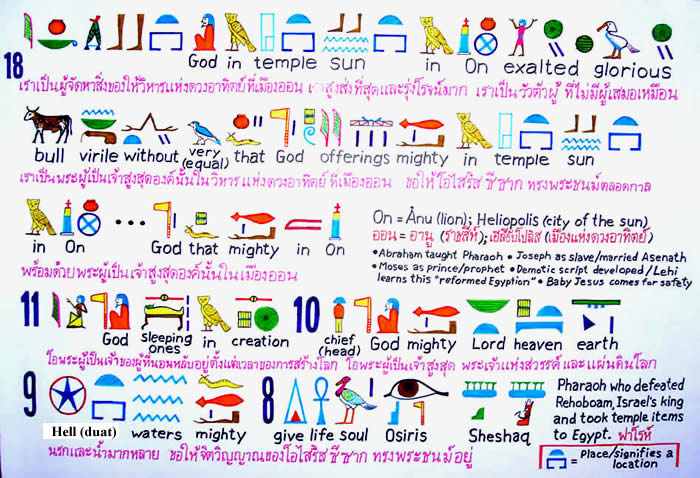 18
God in temple sun in On exalted glorious
เราเป็นผู้จัดหาสิ่งของให้วิหารแห่งดวงอาทิตย์ที่เมืองออน เราสูงส่งที่สุดและรุ่งโรจน์มาก เราเป็นวัวตัวผู้ ที่ไม่มีผู้เสมอเหมือน
bull virile without very (equal) that God offerings mighty in temple sun
เราเป็นพระผู้เป็นเจ้าสูงสุดองค์นั้นในวิหารแห่งดวงอาทิตย์ ที่เมืองออน ขอให้โอไสริส ชีชาก ทรงพระชนม์ตลอดกาล
in On ... God that mighty in On
พร้อมด้วยพระผู้เป็นเจ้าสูงสุดองค์นั้นในเมืองออน
On = Ånu (lion); Heliopolis (city of the sun)
ออน = อานู (ราชสีห์); เฮลิอัโปลิส (เมืองแห่งดวงอาทิตย์)
• Abraham taught Pharaoh • Joseph as slave/married Asenath
• Moses as prince/prophet • Demotic script developed/Lehi
learns this "reformed Egyption" • Baby Jesus comes for safety
11 God sleeping ones in creation
10 chief (head) God mighty Lord heaven earth
โอพระผู้เป็นเจ้าของผู้ที่นอนหลับอยู่ตั้งแต่เวลาของการสร้างโลก โอพระผู้เป็นเจ้าสูงสุด พระเจ้าแห่งสวรรค์และแผ่นดินโลก
9 Hell (duat) waters mighty
8 give life soul Osiris Sheshaq
นรกและน้ำมากหลาย ขอให้จิตวิญญาณของโอไสริส ชีชาก ทรงพระชนม์อยู่
Pharaoh who defeated
Rehoboam, Israel's king
and took temple items
to Egypt. ฟาโรห์
= Place/signifies a
location